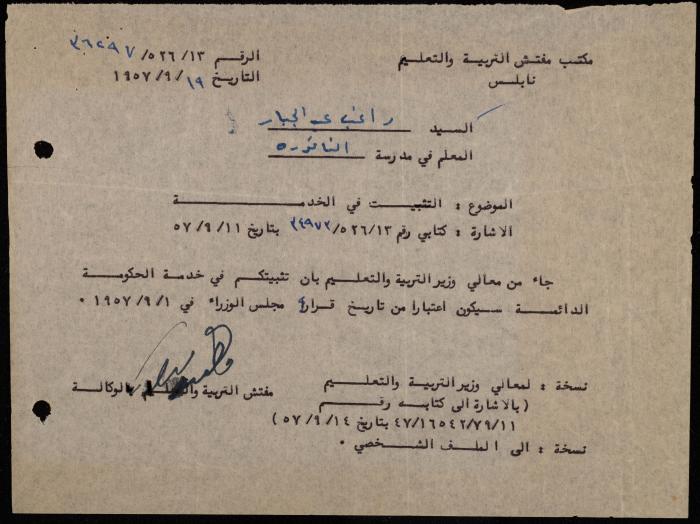 مكتب مفتش التربية والتعليم
نابلس
الرقم ٥٢٦/١٣/٣٦٢٩٧
التاريخ ١٩/٩/١٩٥٧
السيد راغب عبد الجبار
المعلم في مدرسة الناقورة
الموضوع : التثبيت في الخدمة
الاشارة : كتابي رقم ٥٢٦/١٣/٣٤٩٧٣ بتاريخ ٥٧/٩/١١
جاء من معالي وزير التربية والتعليم بان تثبيتكم في خدمة الحكومة
الدائمة سيكون اعتبارا من تاريخ قرار مجلس الوزراء في ١٩٥٧/٩/١ ٠
مفتش التربية والتعليم بالوكالة
نسخة : لمعالي وزير التربية والتعليم
( بالاشارة الى كتابه رقم
٤٧/١٦٥٤٢/٧٩/١١ بتاريخ ٥٧/٩/١٤ )
نسخة : الى الملف الشخصي ٠